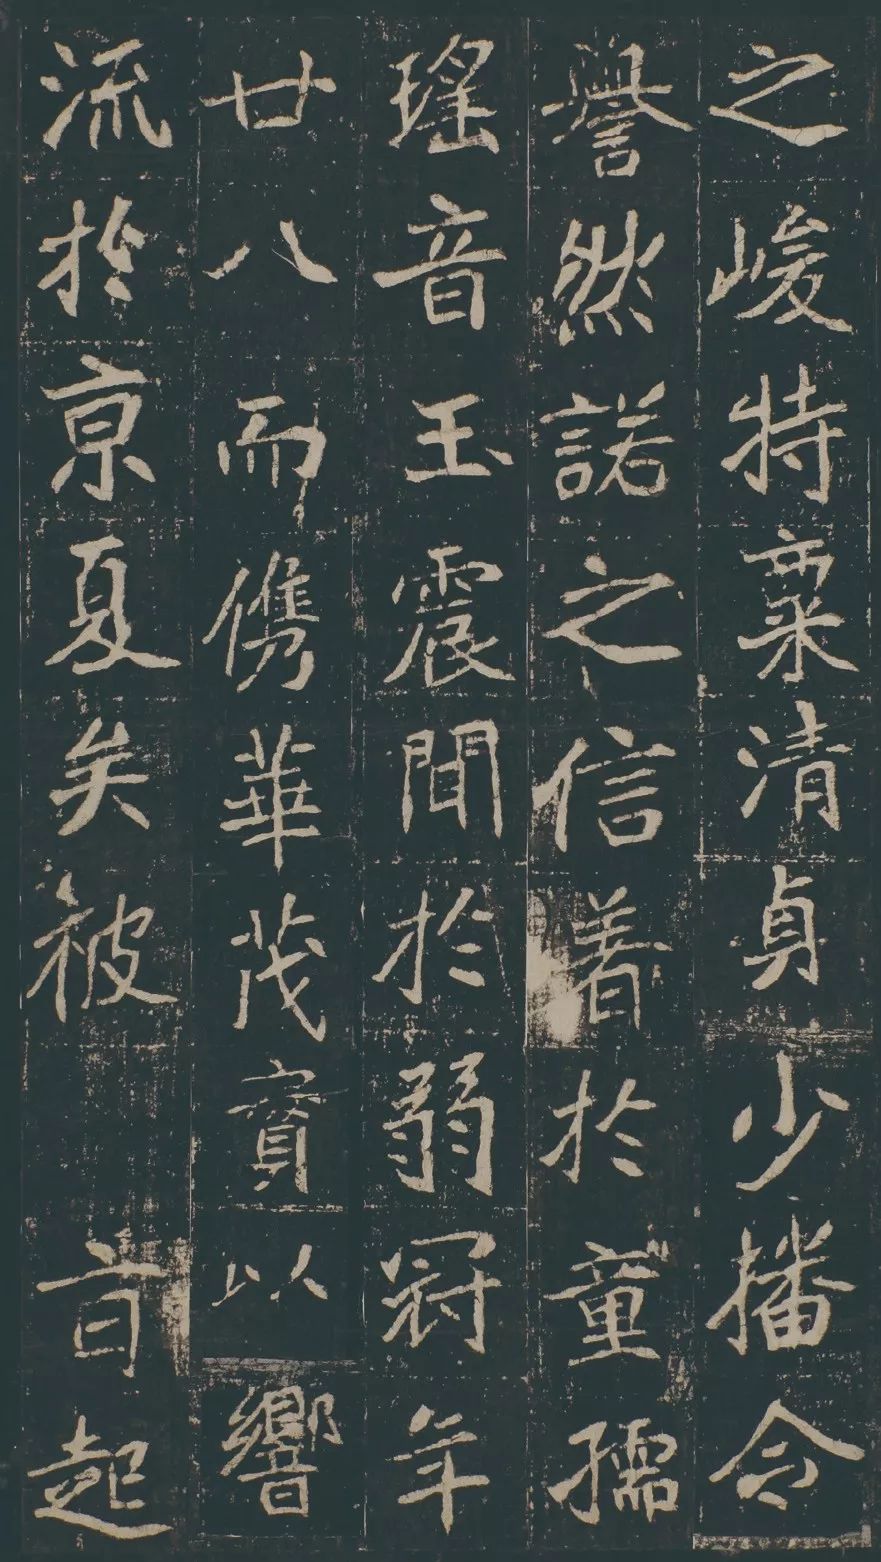 之峻特稟清貞少播令
譽然諾之信着於童孺
瑤音玉震聞於弱冠年
廿八而儁華茂實以響
流於京夏矣被 旨起